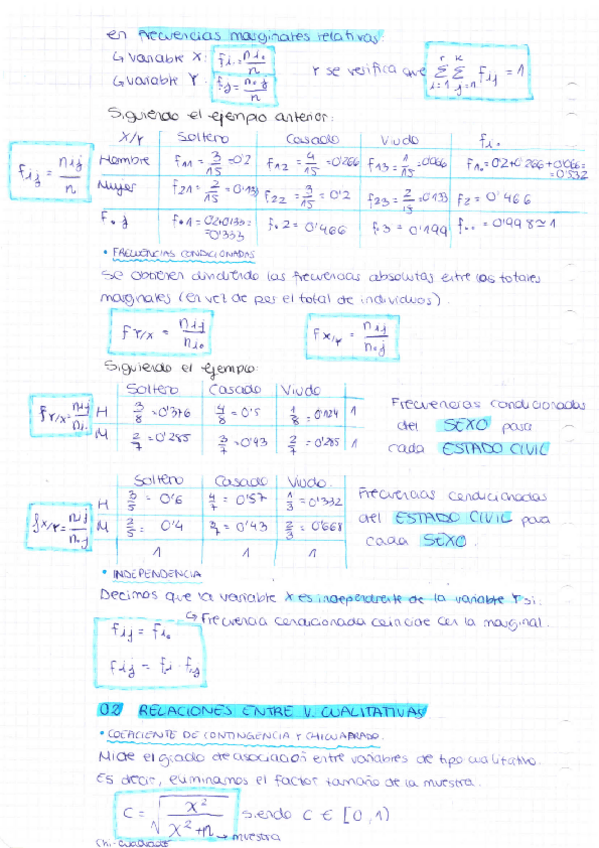 en frecuencias marginales relativas:
↳ variable X: fi. = ni. / n
↳ variable Y: f.j = n.j / n
Y se verifica que Σ(i=1, r) Σ(j=1, k) fij = 1
Siguiendo el ejemplo anterior:
fij = nij / n
X/Y Soltero Casado Viudo fi.
Hombre f11 = 3/15 = 0'2 f12 = 4/15 = 0'266 f13 = 1/15 = 0'066 f1. = 0'2+0'266+0'066 = 0'532
Mujer f21 = 2/15 = 0'133 f22 = 3/15 = 0'2 f23 = 2/15 = 0'133 f2 = 0'466
f.j f.1 = 0'2+0'133 = 0'333 f.2 = 0'466 f.3 = 0'199 f.. = 0'998 ≃ 1
• FRECUENCIAS CONDICIONADAS
Se obtienen dividiendo las frecuencias absolutas entre los totales
marginales (en vez de por el total de individuos).
f Y/X = nij / ni.
f X/Y = nij / n.j
Siguiendo el ejemplo:
Soltero Casado Viudo
f Y/X = nij / ni.
H 3/8 = 0'376 4/8 = 0'5 1/8 = 0'124 1
M 2/7 = 0'285 3/7 = 0'43 2/7 = 0'285 1
Frecuencias condicionadas
del SEXO para
cada ESTADO CIVIL
Soltero Casado Viudo.
f X/Y = nij / n.j
H 3/5 = 0'6 4/7 = 0'57 1/3 = 0'332
M 2/5 = 0'4 3/7 = 0'43 2/3 = 0'668
1 1 1
Frecuencias condicionadas
del ESTADO CIVIL para
cada SEXO.
• INDEPENDENCIA
Decimos que la variable X es independiente de la variable Y si:
↳ Frecuencia condicionada coincide con la marginal.
fij = fi.
fij = fi · f.j
0.2 RELACIONES ENTRE V. CUALITATIVAS
• COEFICIENTE DE CONTINGENCIA Y CHI CUADRADO.
Mide el grado de asociación entre variables de tipo cualitativo.
Es decir, eliminamos el factor tamaño de la muestra.
C = √(X² / (X² + n)) siendo C ∈ [0, 1)
→ muestra
Chi-cuadrado